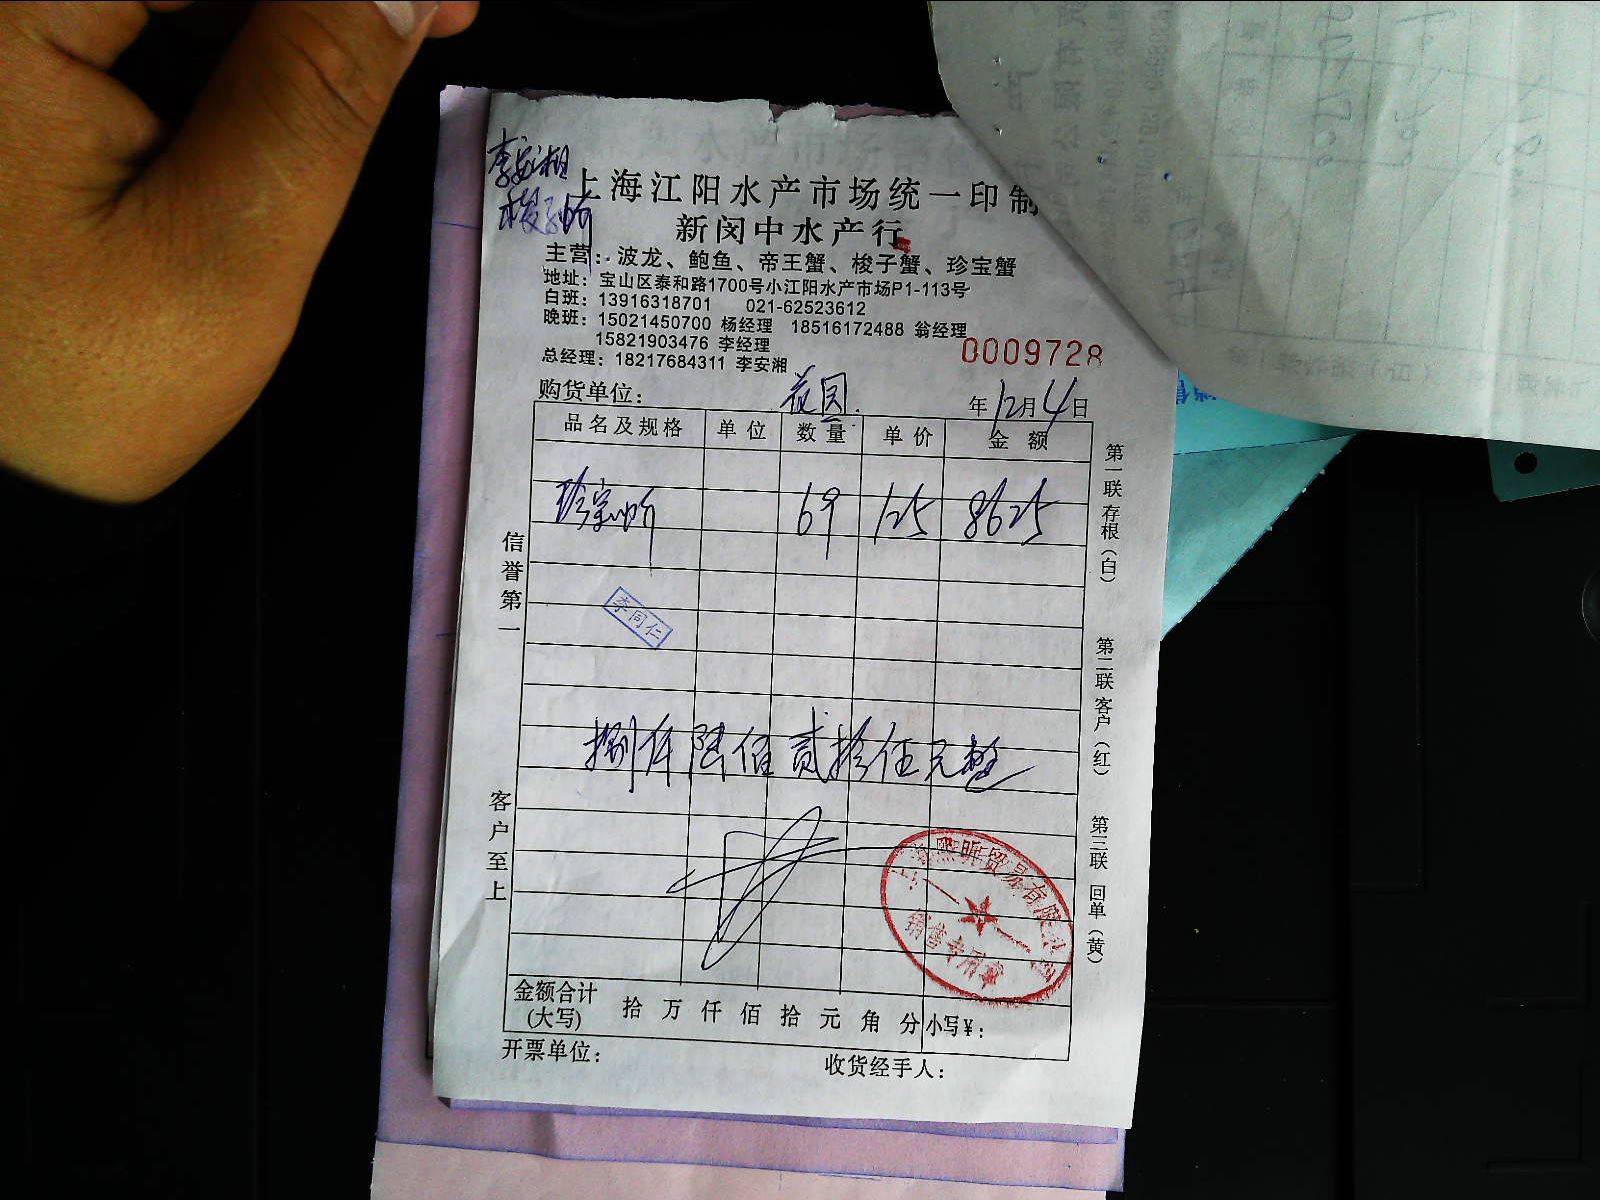 李安湘
梭子蚧
上海江阳水产市场统一印制
新闵中水产行
主营：波龙、鲍鱼、帝王蟹、梭子蟹、珍宝蟹
地址：宝山区泰和路1700号小江阳水产市场P1-113号
白班：13916318701 021-62523612
晚班：15021450700 杨经理 18516172488 翁经理
15821903476 李经理
总经理：18217684311 李安湘
0009728
购货单位： 花园.
年12月4日
品名及规格 单位 数量 单价 金额
珍宝蚧 69 125 8625
李同仁
捌仟陆佰贰拾伍元整
销售专用章
金额合计
(大写) 拾 万 仟 佰 拾 元 角 分 小写￥：
开票单位： 收货经手人：
信誉第一
客户至上
第一联 存根（白）
第二联 客户（红）
第三联 回单（黄）